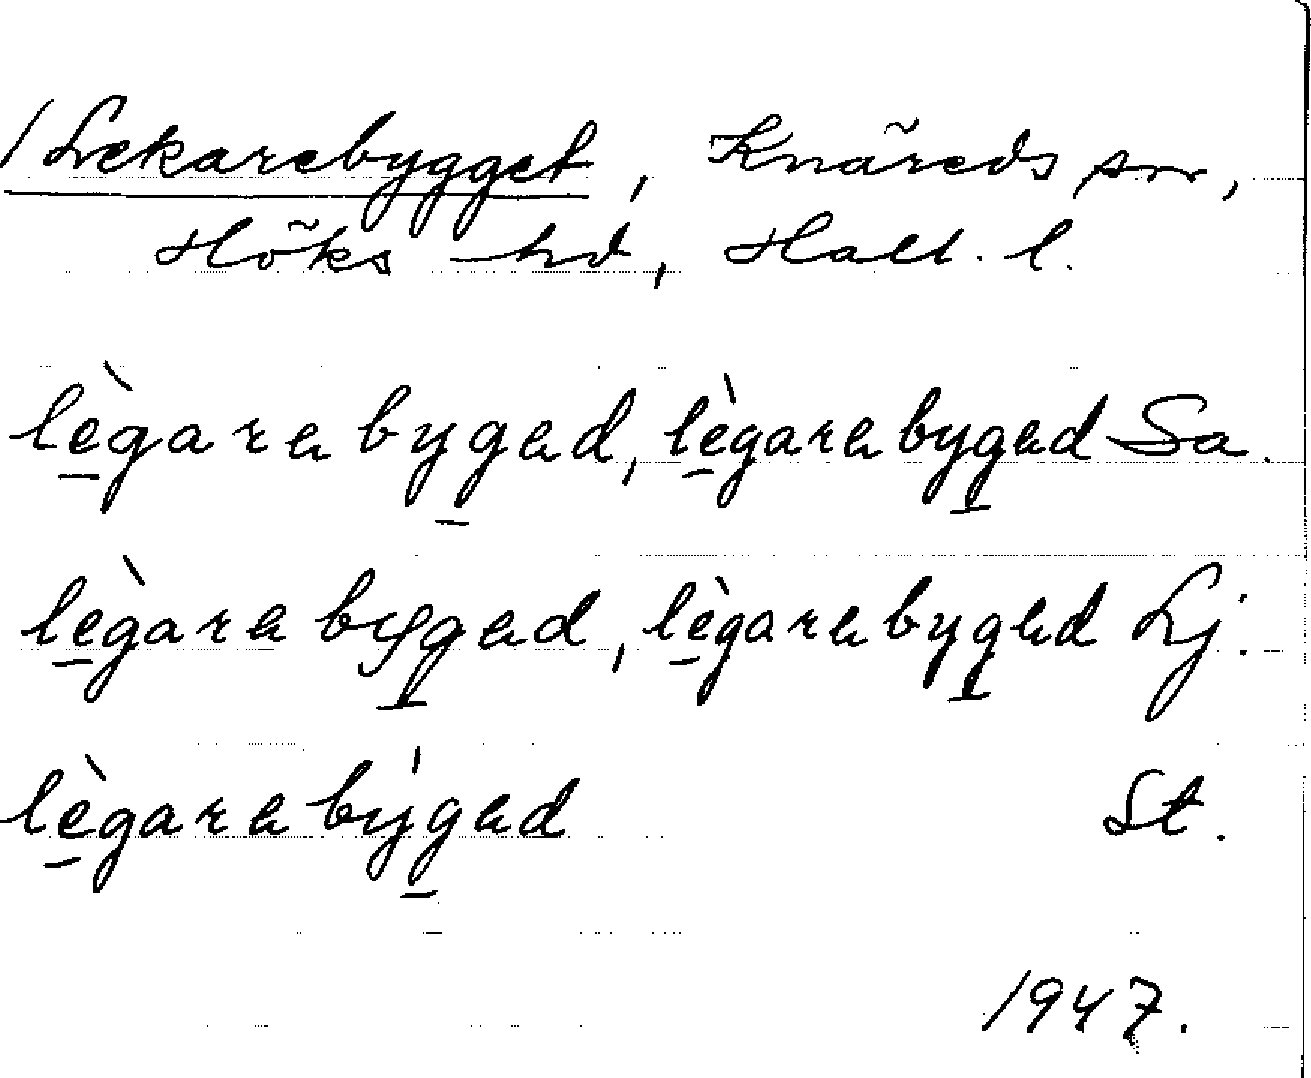 /Lekarebygget, Knäreds sn,
Höks hd, Hall. l.
lègarabygad, lègarabygad Sa.
lègarabygad, lègarabygad Lj.
lègarabýgad St.
1947.